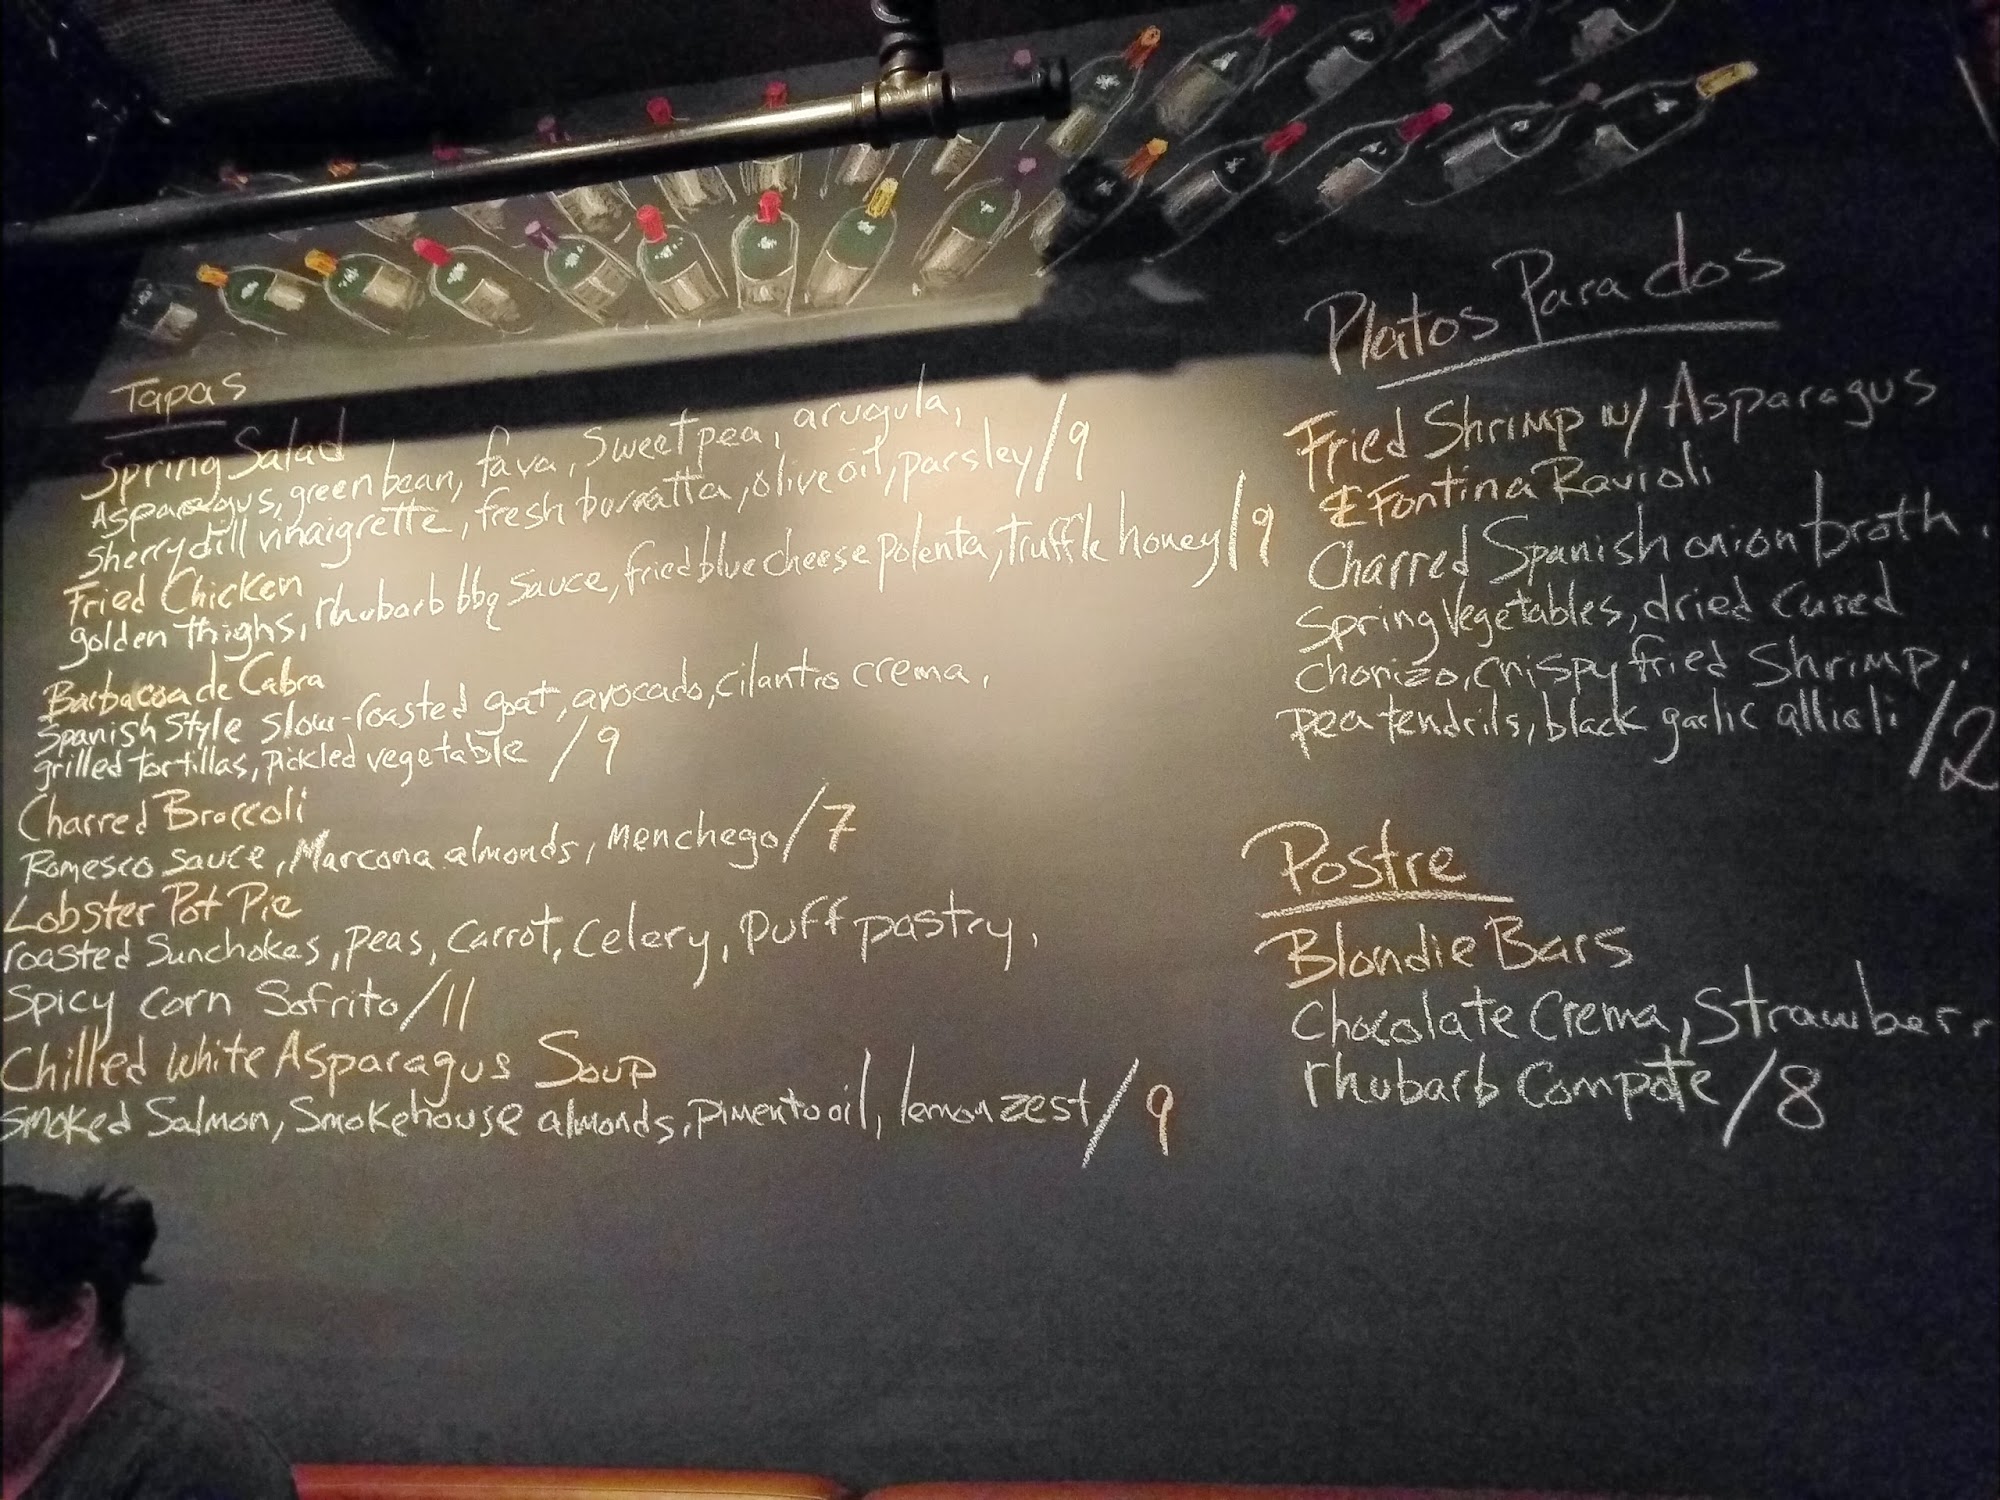 Tapas
Spring Salad
Asparagus, green bean, fava, Sweet pea, arugula,
Sherry dill vinaigrette, fresh burratta, olive oil, parsley/9
Fried Chicken
golden thighs, rhubarb bbq sauce, fried blue cheese polenta, truffle honey/9
Barbacoa de Cabra
Spanish Style slow-roasted goat, avocado, cilantro crema,
grilled tortillas, pickled vegetable /9
Charred Broccoli
Romesco sauce, Marcona almonds, Menchego/7
Lobster Pot Pie
roasted Sunchokes, peas, carrot, celery, puff pastry,
Spicy corn Sofrito/11
Chilled White Asparagus Soup
Smoked Salmon, Smokehouse almonds, pimento oil, lemon zest/9
Platos Para dos
Fried Shrimp w/ Asparagus
& Fontina Ravioli
Charred Spanish onion broth,
Spring Vegetables, dried cured
chorizo, crispy fried Shrimp,
pea tendrils, black garlic allioli /2
Postre
Blondie Bars
Chocolate Crema, Strawberr
rhubarb Compote/8